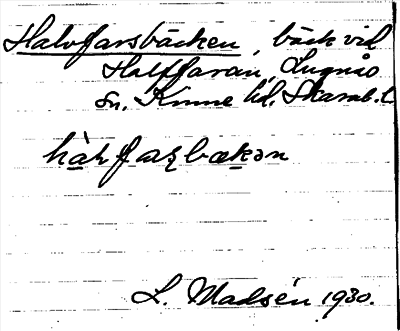 Halvfarsbäcken, bäck vid
Halffaran, Lugnås
sn, Kinne hd. Skarab. l.
L. Madsén 1930.